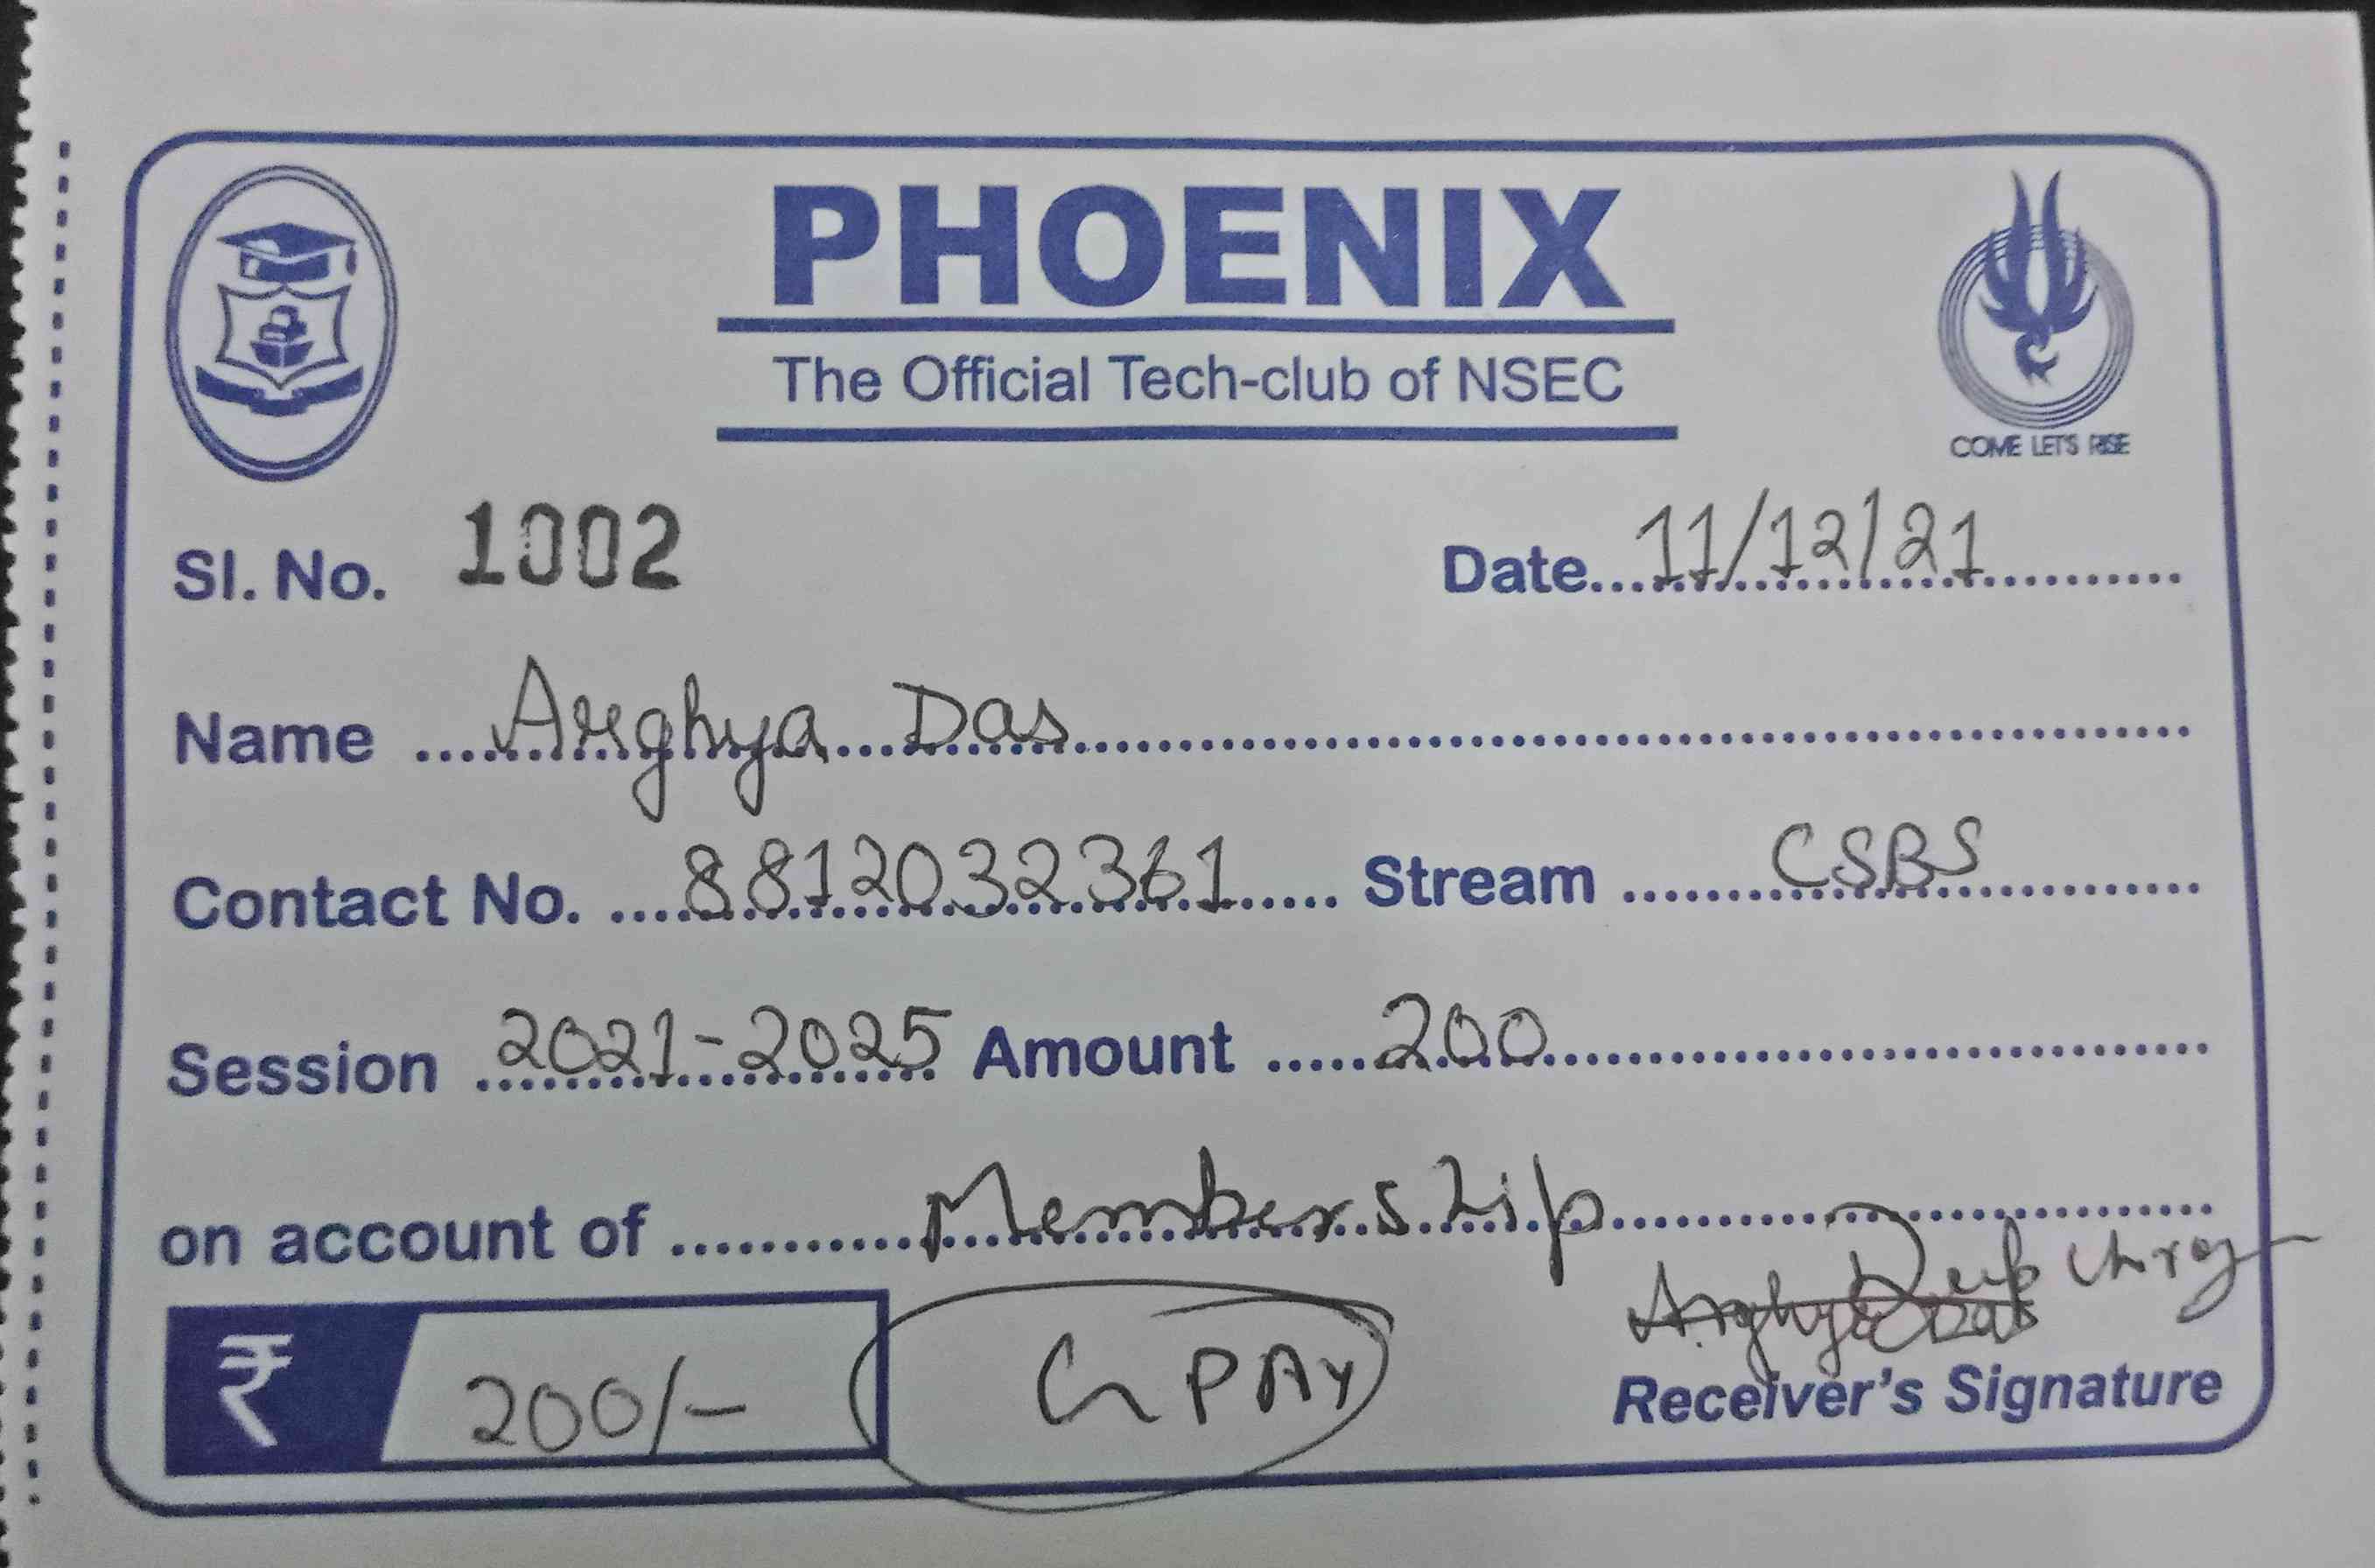 PHOENIX
The Official Tech-club of NSEC
COME LET'S RISE
Sl. No. 1002 Date 11/12/21
Name Arghya Das
Contact No. 8812032361 Stream CSBS
Session 2021-2025 Amount 200
on account of Membership
₹ 200/- GPAY
Arghya Das
Receiver's Signature